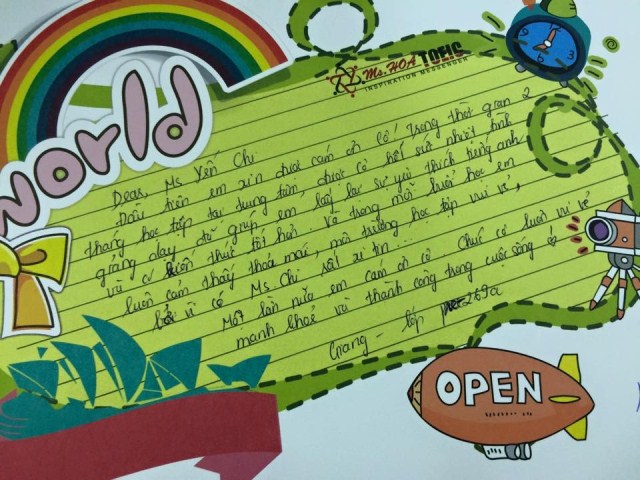 world
Ms. HOA TOEIC
INSPIRATION MESSENGER
Dear Ms Yến Chi
Đầu tiên em xin được cảm ơn cô! Trong thời gian 2
tháng học tập tại trung tâm, được cô hết sức nhiệt tình
giảng dạy, đã giúp em lấy lại sự yêu thích tiếng anh
và có kiến thức tốt hơn. Và trong mỗi buổi học em
luôn cảm thấy thoải mái, môi trường học tập vui vẻ,
bởi vì có Ms. Chi rất uy tín...
Một lần nữa em cảm ơn cô. Chúc cô luôn vui vẻ
mạnh khoẻ và thành công trong cuộc sống ạ
Giang - lớp 269a
OPEN